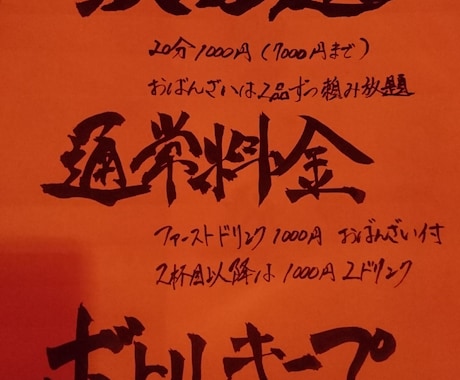 20分1000円(7000円まで)
おばんざいは2品ずつ頼み放題
通常料金
ファーストドリンク1000円 おばんざい付
2杯目以降は1000円2ドリンク
ボトルキープ